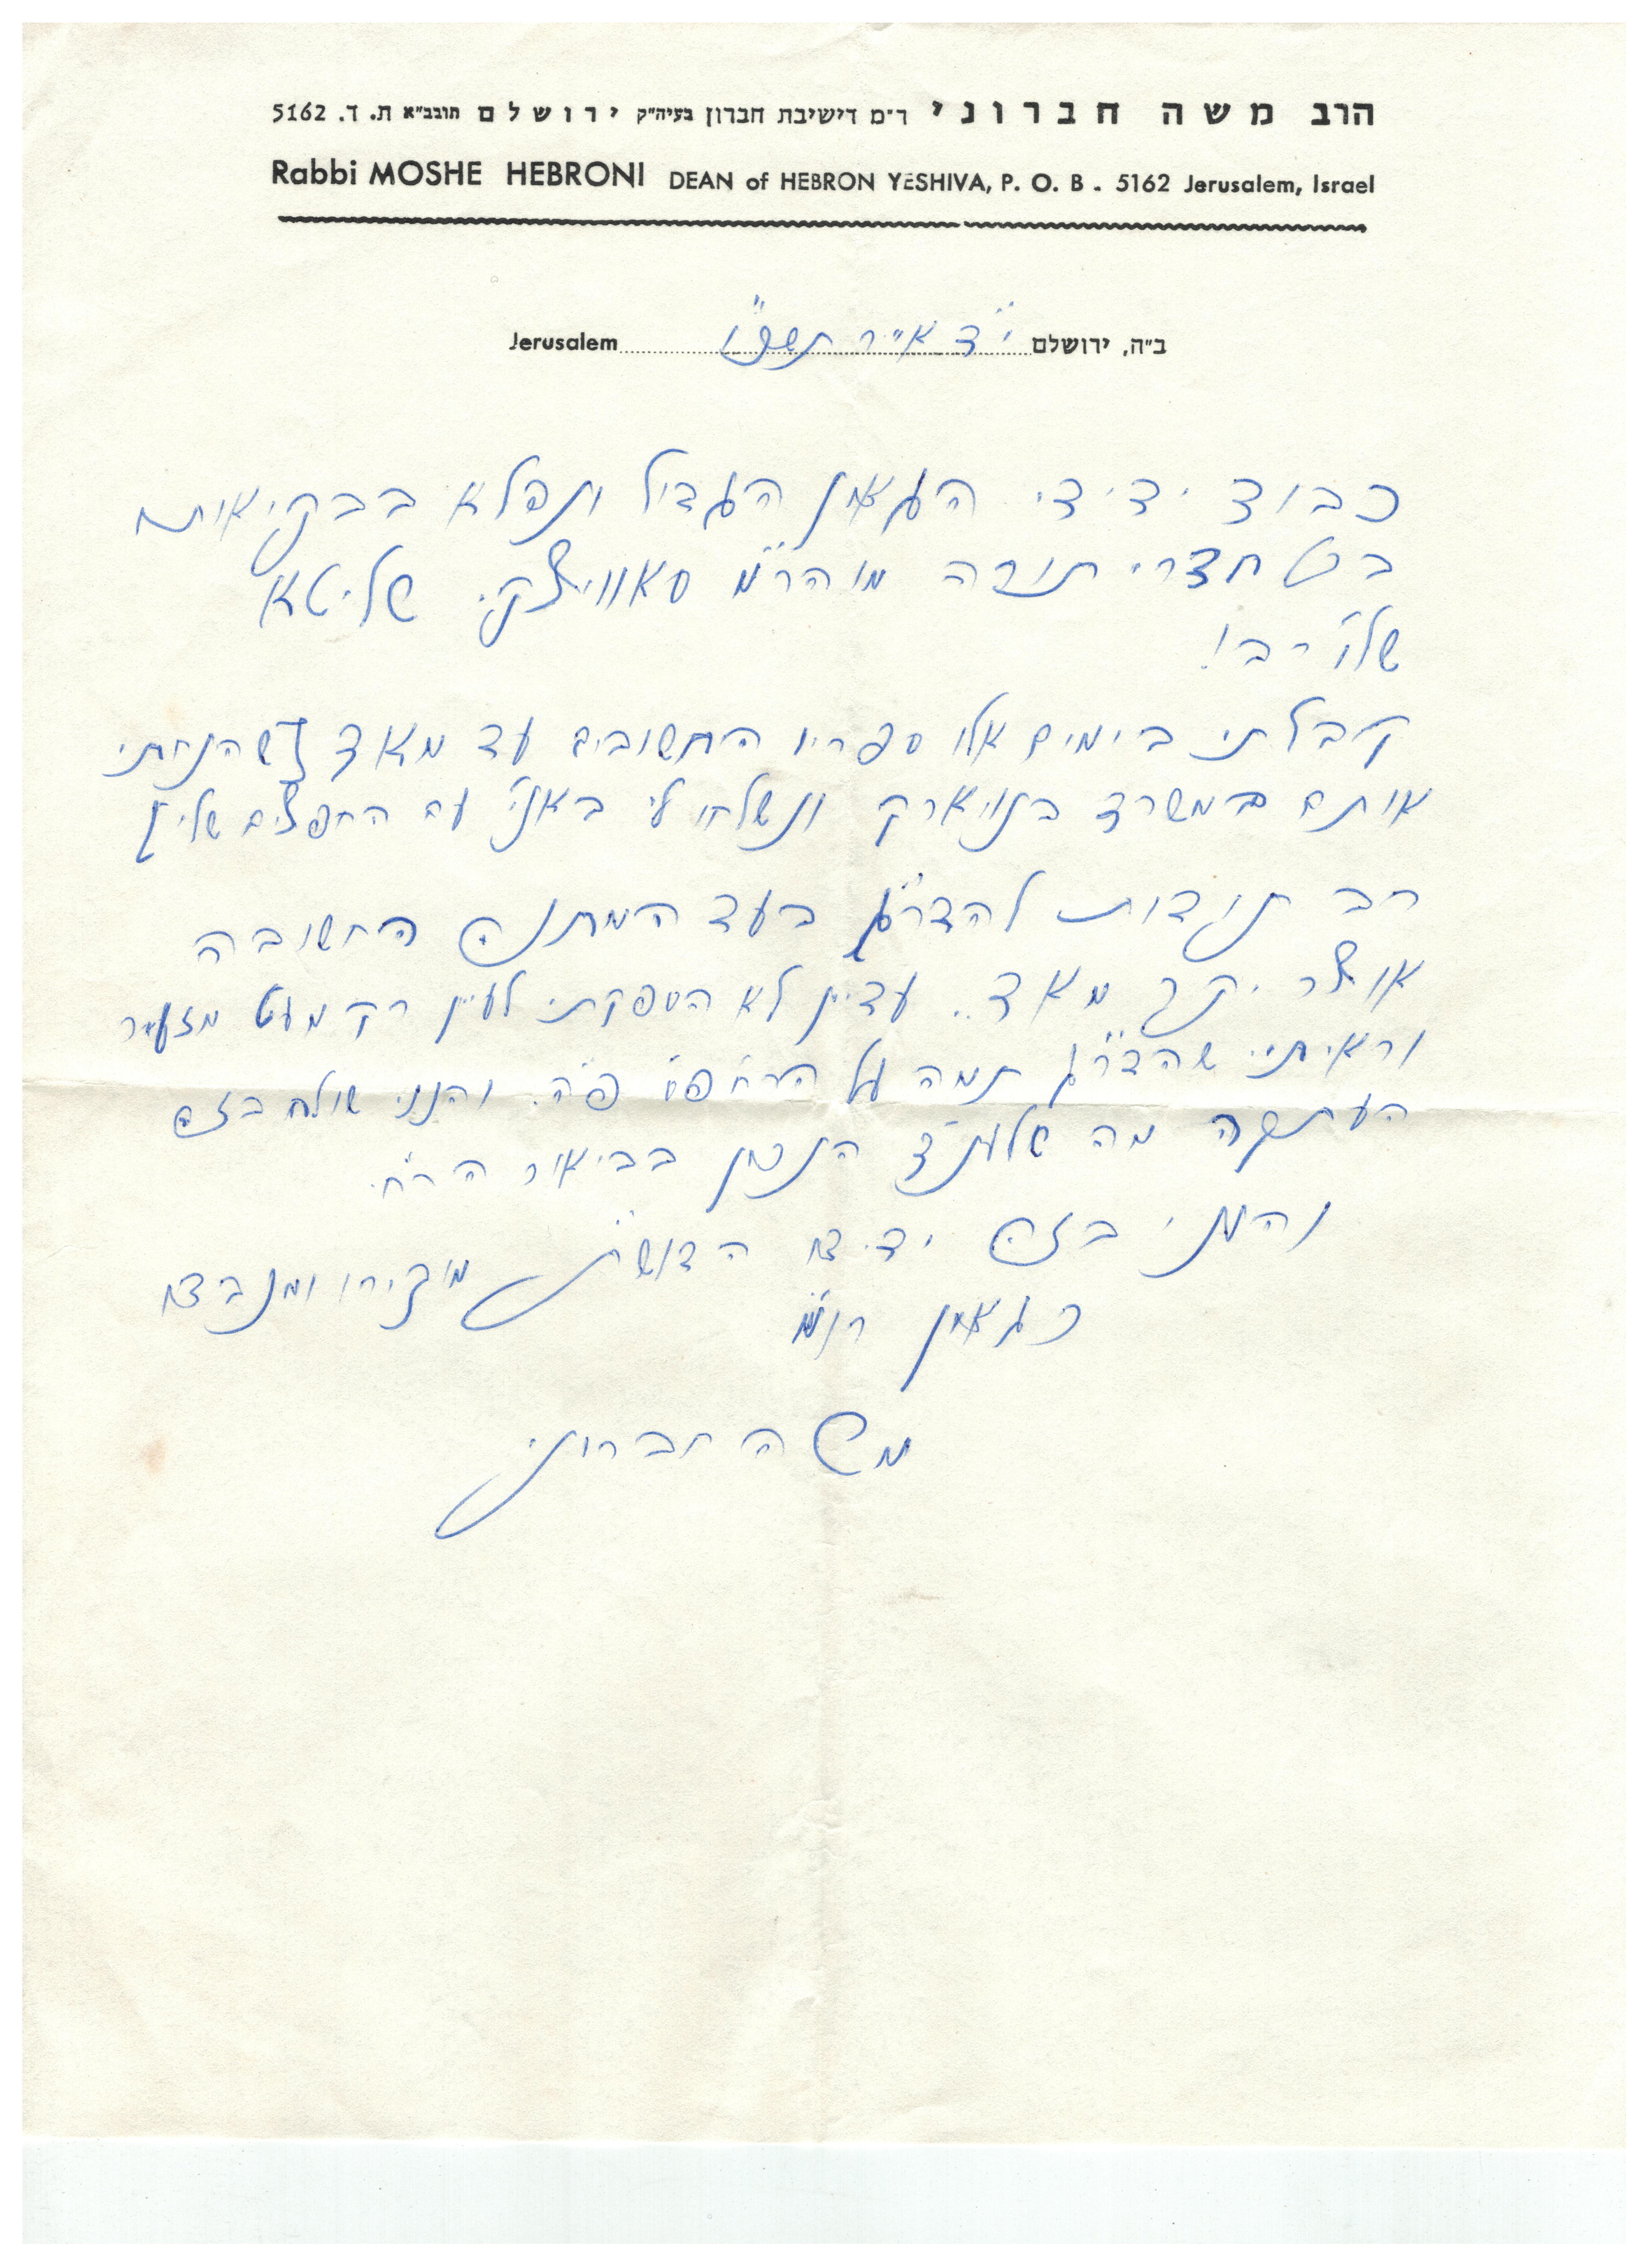 הרב משה חברוני ר"מ דישיבת חברון בעיה"ק ירושלם תובב"א ת. ד. 5162
Rabbi MOSHE HEBRONI DEAN of HEBRON YESHIVA, P. O. B. 5162 Jerusalem, Israel
ב"ה, ירושלם י"ד אייר Jerusalem
כבוד ידידי הגאון הגדול ונפלא בבקיאות
בכל חדרי תורה מוהר"מ סאוויצקי שליטא
שלו' רב!
קבלתי בימים אלו ספריו החשובים עד מאד [שהנחתי
אותם במשרד בנויארק ונשלחו לי באני' עם החפצים שלי]
רב תודות להדר"ג בעד המתנה החשובה
אוצר יקר מאד.. עדיין לא הספקתי לעיין רק מעט מזעיר
וראיתי שהדר"ג תמה על הגר"ח והנני שולח בזה
העתקה מה הנכון בביאור הר"ח.
והנני בזה ידידו הדוש"ת מוקירו ומכבדו
כגאון
משה חברוני